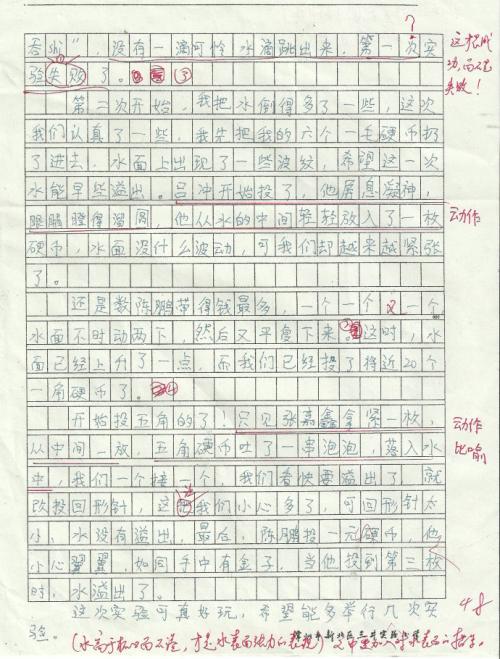 ?
吾shi"，没有一滴可怜水滴跳出来，第一次实
验失败了。③
这才是成功，而不是失败！
第二次开始，我把水倒得多了一些，这次
我们认真了一些，我先把我的六个一毛硬币扔
了进去，水面上出现了一些波纹，希望这一次
水能早些溢出。吕冲开始投了，他屏息凝神，
眼睛瞪得溜圆，他从水的中间轻轻放入了一枚
动作
硬币，水面没什么波动，可我们却越来越紧张
了。
还是数陈鹏带得钱最多，一个一个又一个
水面不时动两下，然后又平复下来。这时，水
面已经上升了一点，而我们已经投了将近20个
一角硬币了。④
开始投五角的了！只见张嘉鑫拿紧一枚，
动作
从中间一放，五角硬币吐了一串泡泡，落入水
比喻
中，我们一个接一个，我们看快要溢出了，就
改投回形针，这我们小心多了，可回形针太
小，水没有溢出，最后，陈鹏投一元硬币，他
小心翼翼，如同手中有金子，当他投到第三枚
时，水溢出了。
48
这次实验可真好玩，希望能多举行几次实
验。
（水高于杯口而不溢，才是水表面张力的表现）